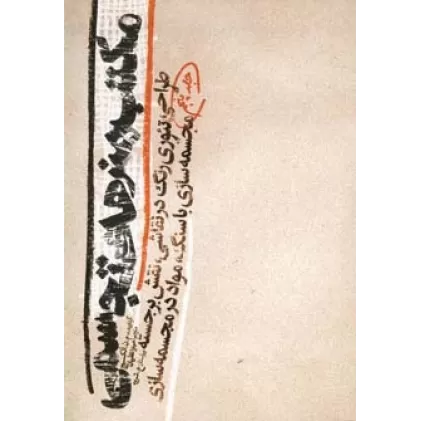 مکتب هنرهای تجسمی
جلد پنجم
طراحی، تئوری رنگ در نقاشی، نقش برجسته
مجسمه‌سازی با سنگ، مواد در مجسمه‌سازی